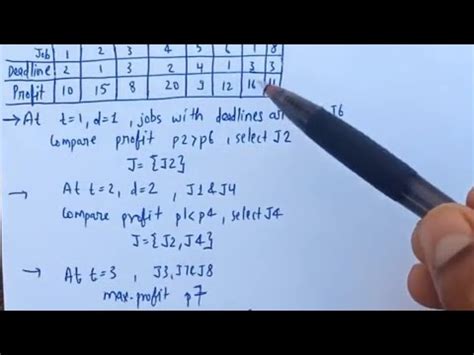 Job 1 2 3 4 5 6 7 8
Deadline 2 1 3 2 4 1 3 3
Profit 10 15 8 20 9 12 16 11
→ At t=1, d=1, jobs with deadlines J6
Compare profit p2>p6, select J2
J = {J2}
→ At t=2, d=2, J1&J4
Compare profit p1<p4, select J4
J = {J2, J4}
→ At t=3, J3, J7&J8
max. profit p7